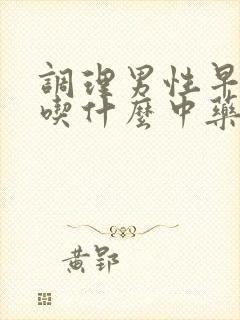 調理男性早
喫什麼中藥
黃郢